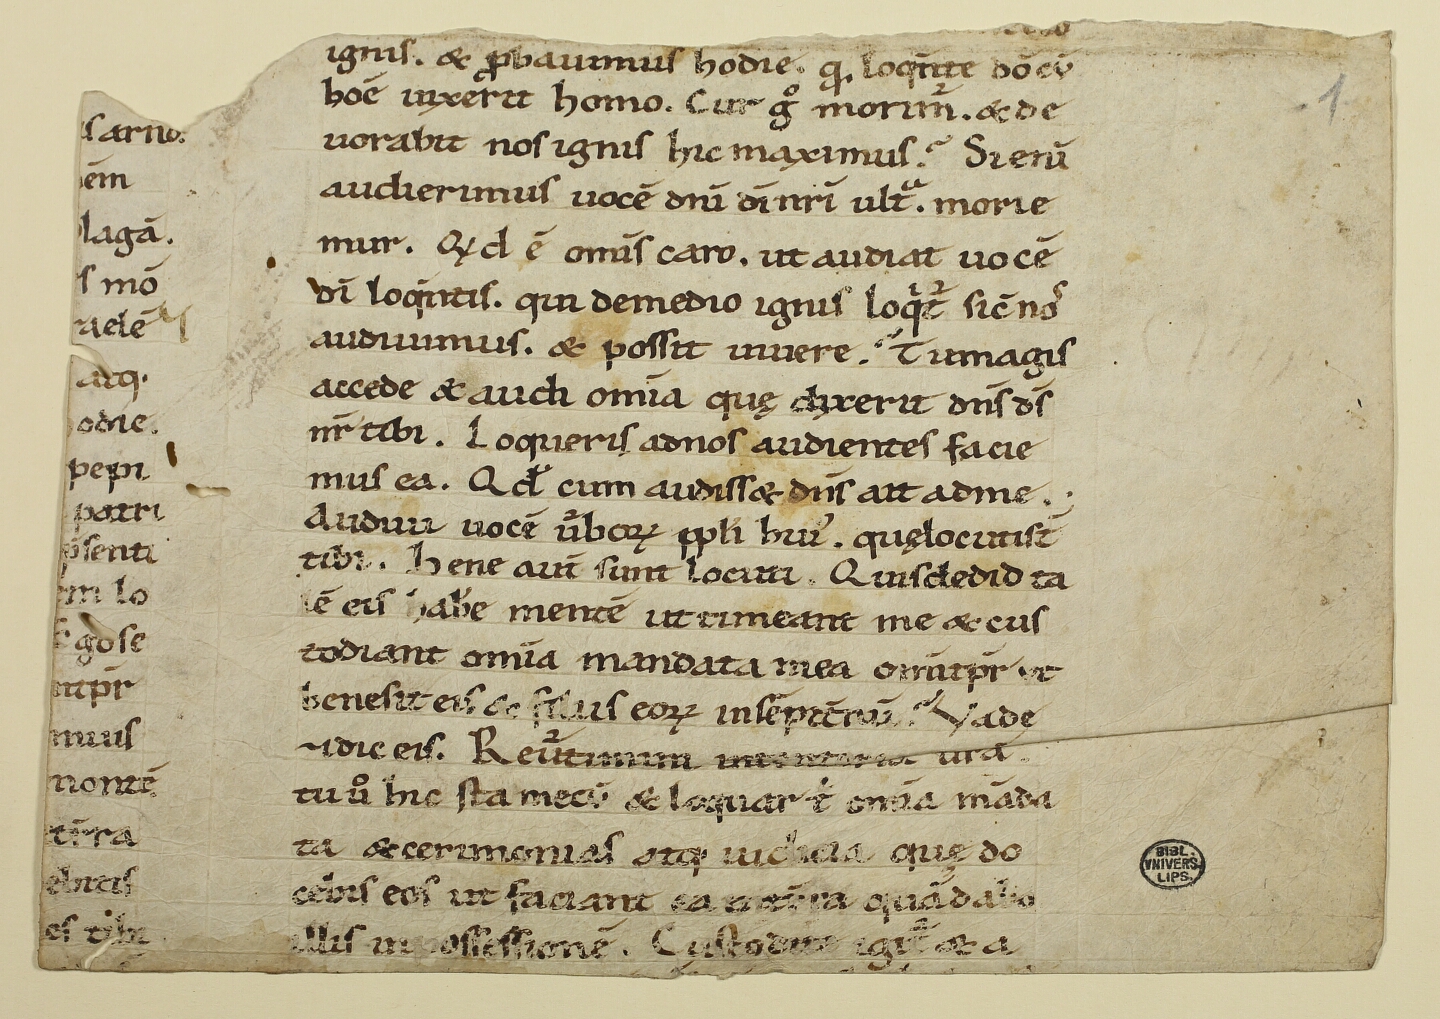 sarno.
em
lagā.
s mō
raelē
atq.
odie.
pepi
patri
p̄senti
m lo
gose
ntp̄r
muus
montē
t̄rra
es tibi
ignis. & ꝓbauimus hodie. q̄. loq̄nte dō cū
hoīe uixerit homo. Cur gͦ morim̄. & de
uorabit nos ignis hic maximus? Si enī
audierimus uocē dn̄i dī nr̄i ult̄ᵃ. morie
mur. Qͥd ē om̄is caro. ut audiat uocē
dī loq̄ntis. qui de medio ignis loqͥt᷑ sic̄ nos
audiuimus. & possit uiuere? Tu magis
accede & audi om̄ia quę dixerit dn̄s d̄s
nr̄ tibi. Loqueris ad nos audientes facie
mus ea. Qd̄ cum audiss& dn̄s ait ad me.
Audiui uocē ūboꝝ ppl̄i huiꝰ. quę locuti st̄
tibi. bene aut̄ sunt locuti. Quis det id ta
lē eis hab̄e mentē ut timeant me & cus
todiant om̄ia mandata mea om̄i tp̄r ut
bene sit eis & filiis eoꝝ in sēpit̄nū? Vade
dic eis. Reūtimini in tentoria ur̄a.
tu ūͦ hic sta mecū & loquar tͥ om̄ia māda
ta & cerimonias atq; iudicia quę do
cēbis eos ut faciant ea in t̄rra quā dabo
illis in possessionē. Custodite igit᷑ & a
1
BIBL.
VNIVERS.
LIPS.